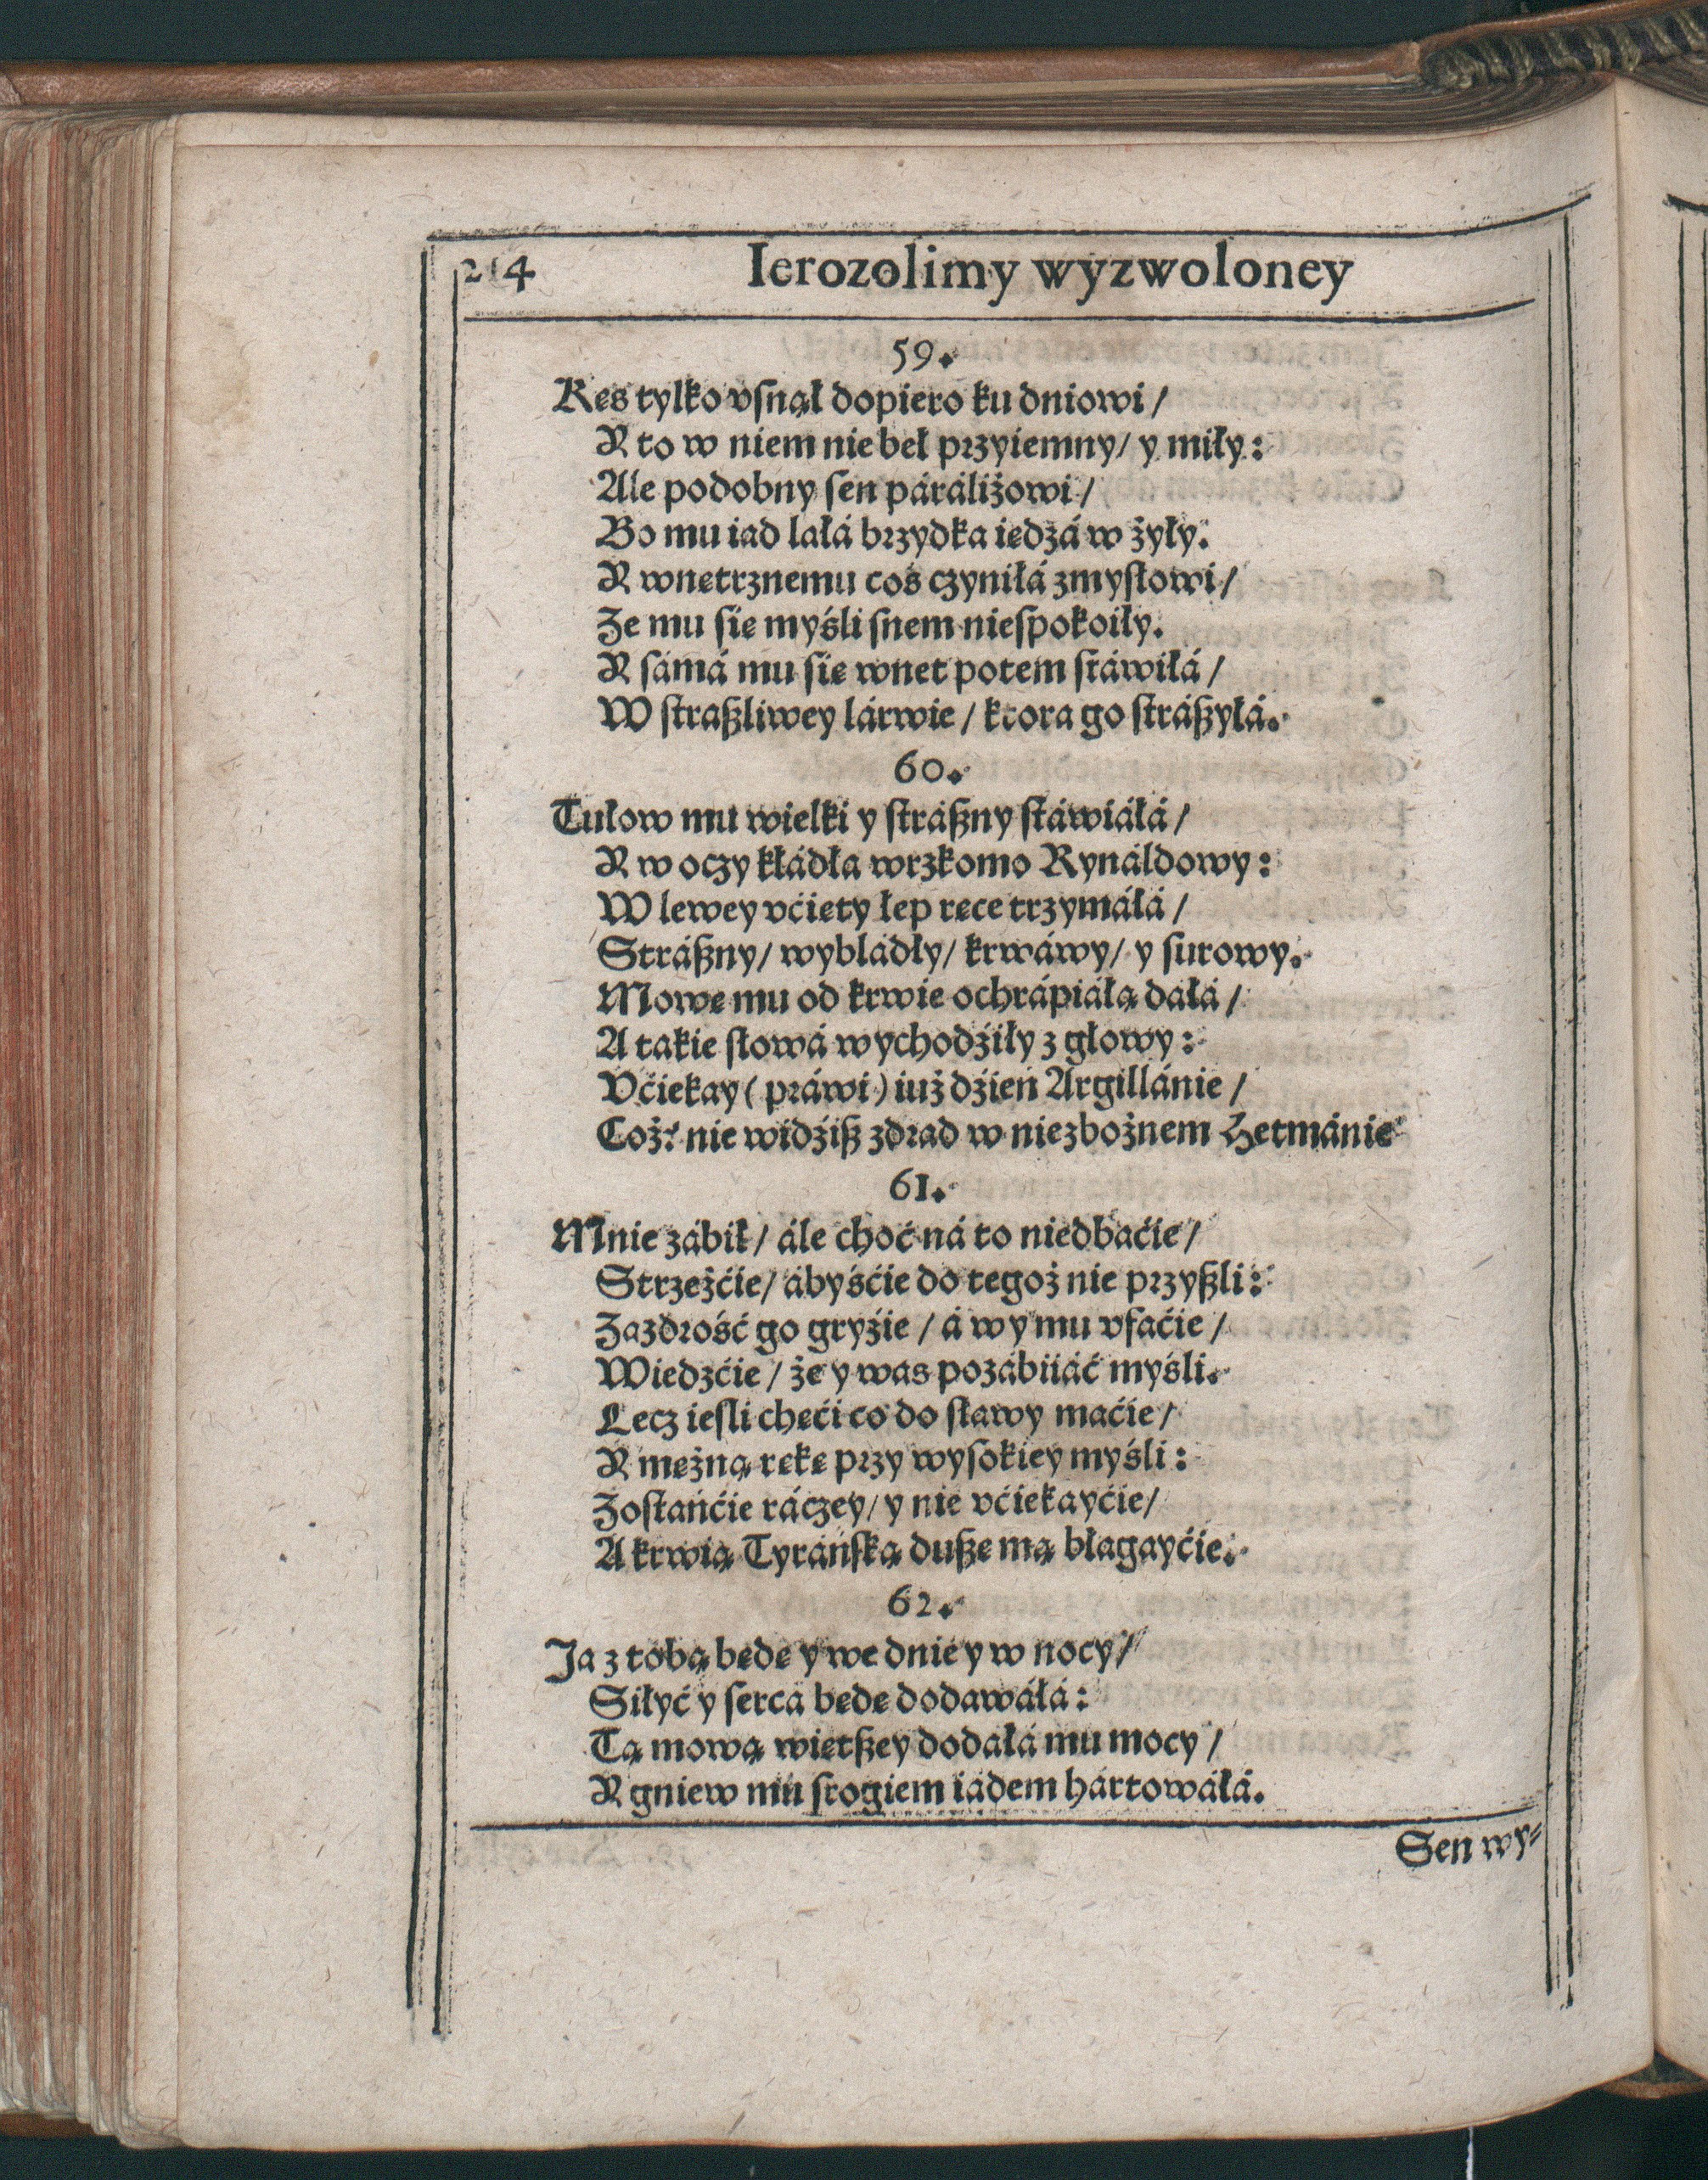 214 Ierozolimy wyzwoloney
59.
Kęs tylko vſnął dopiero ku dniowi /
Y to w niem nie beł przyiemny / y miły :
Ale podobny ſen páráliżowi /
Bo mu iad lałá brzydka iędzá w żyły.
Y wnętrznemu coś czyniłá zmyſłowi /
Że mu ſię myśli ſnem nieſpokoiły.
Y ſámá mu ſię wnet potem ſtáwiłá /
W ſtraßliwey lárwie / ktora go ſtráßyłá.
60.
Tułow mu wielki y ſtráßny ſtáwiáłá /
Y w oczy kłádła wrzkomo Rynáldowy :
W lewey vćięty łep ręce trzymáłá /
Stráßny / wybládły / krwáwy / y ſurowy.
Mowę mu od krwie ochrápiáłą dałá /
A takie ſłowá wychodźiły z głowy :
Vćiekay ( práwi ) iuż dźień Argillánie /
Coż? nie widźiß zdrad w niezbożnem Hetmánie
61.
Mnie zábił / ále choć ná to niedbaćie /
Strzeżćie / ábyśćie do tegoż nie przyßli :
Zazdrość go gryźie / á wy mu vfaćie /
Wiedzćie / że y was pozábiiáć myśli.
Lecz ieſli chęći co do ſławy maćie /
Y mężną rękę przy wyſokiey myśli :
Zoſtańćie ráczey / y nie vćiekayćie /
A krwią Tyráńſką dußę mą błagayćie.
62.
Ja z tobą będę y we dnie y w nocy /
Siłyć y ſercá będę dodawáłá :
Tą mową więtßey dodałá mu mocy /
Y gniew mu ſrogiem iádem hártowáłá.
Sen wy-